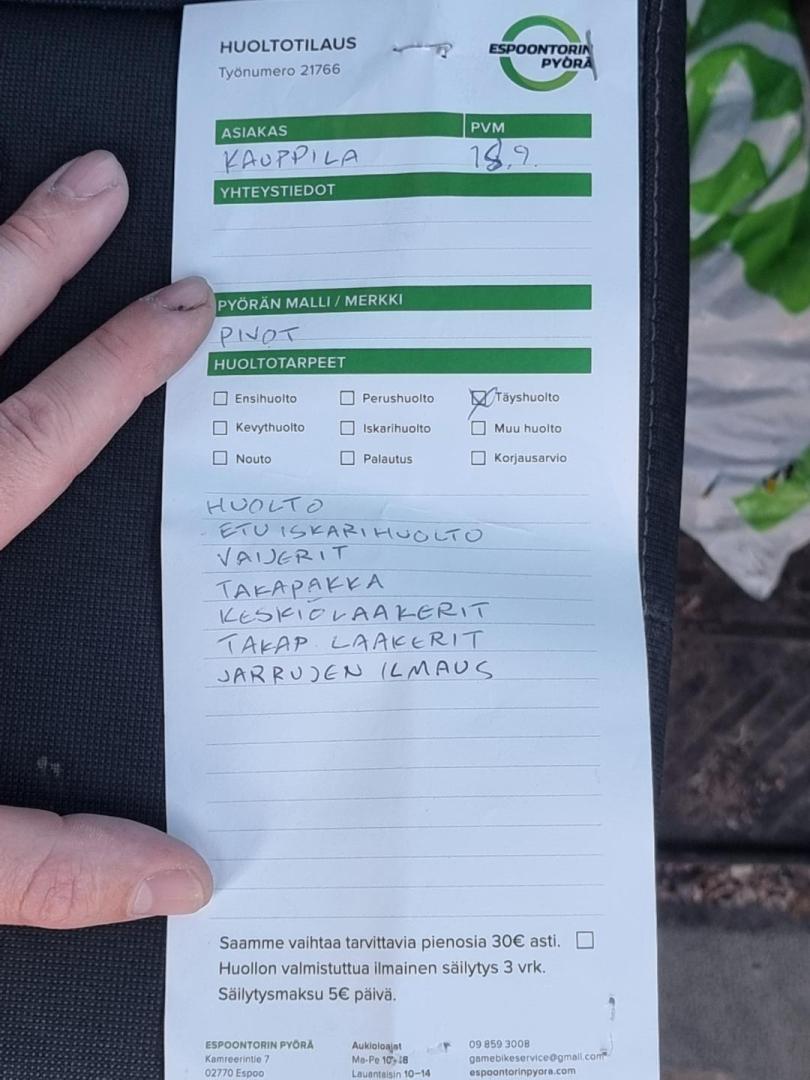 HUOLTOTILAUS
Työnumero 21766
ESPOONTORIN
PYÖRÄ
ASIAKAS PVM
KAUPPILA 18.9.
YHTEYSTIEDOT
PYÖRÄN MALLI / MERKKI
PIVOT
HUOLTOTARPEET
Ensihuolto Perushuolto Täyshuolto
Kevythuolto Iskarihuolto Muu huolto
Nouto Palautus Korjausarvio
HUOLTO
ETU ISKARIHUOLTO
VAIJERIT
TAKAPAKKA
KESKIÖLAAKERIT
TAKAP. LAAKERIT
JARRUJEN ILMAUS
Saamme vaihtaa tarvittavia pienosia 30€ asti.
Huollon valmistuttua ilmainen säilytys 3 vrk.
Säilytysmaksu 5€ päivä.
ESPOONTORIN PYÖRÄ Aukioloajat 09 859 3008
Kamreerintie 7 Ma-Pe 10-18 gamebikeservice@gmail.com
02770 Espoo Lauantaisin 10-14 espoontorinpyora.com